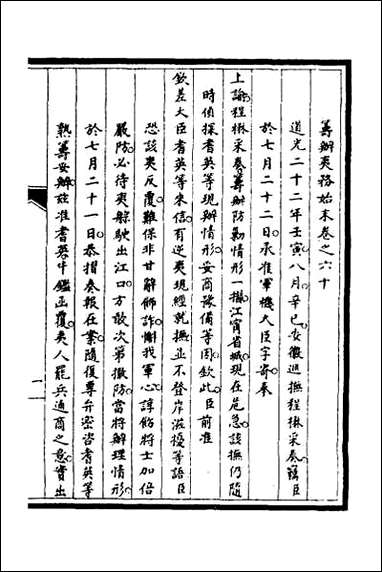 籌辦夷務始末卷之六十
道光二十二年壬寅八月辛巳安徽巡撫程楙采奏竊臣
於七月二十二日承准軍機大臣字寄奉
上諭程楙采奏籌辦防勦情形一摺江甯省城現在危急該撫仍隨
時偵探耆英等現辦情形妥商豫備等因欽此臣前准
欽差大臣耆英等來信有逆夷現經就撫並不登岸滋擾等語臣
恐該夷反覆難保非甘辭餌詐懈我軍心諄飭將士加倍
嚴防必待夷艘駛出江口方敢次第撤防當將辦理情形
於七月二十一日恭摺奏報在案隨復專弁密咨耆英等
熟籌妥辦茲准耆英牛鑑函覆夷人罷兵通商之意實出